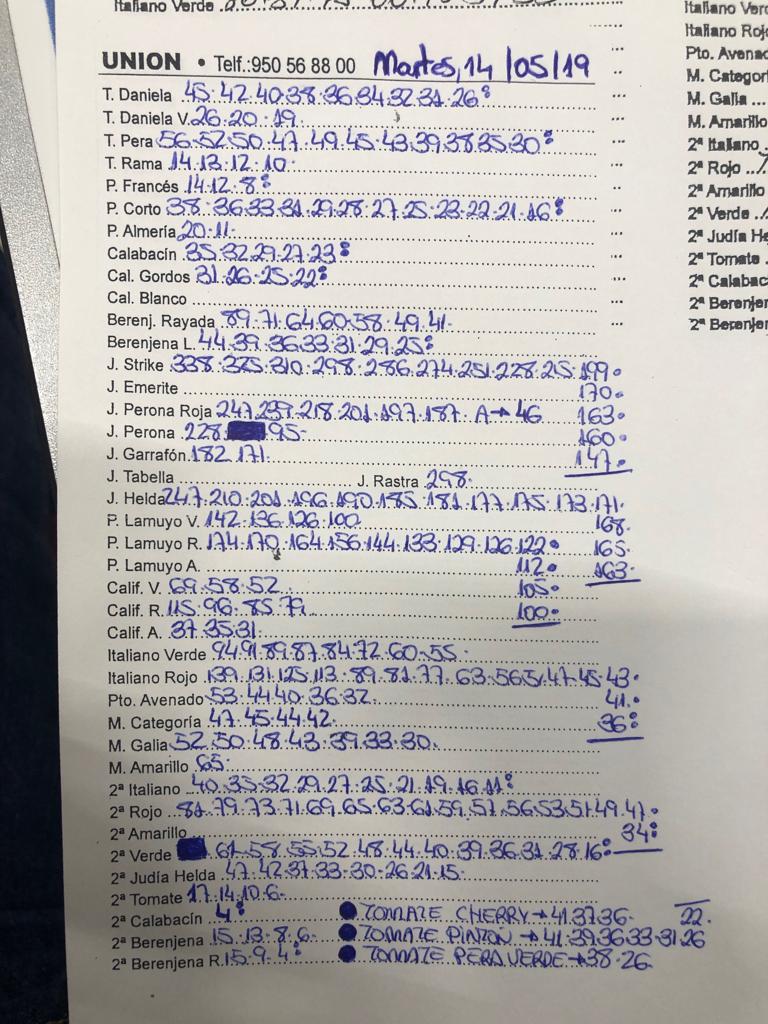 Italiano Verde
UNION • Telf.:950 56 88 00 Martes, 14/05/19
T. Daniela 45·42·40·38·36·34·32·31·26:
T. Daniela V. 26·20·19·
T. Pera 56·52·50·47·49·45·43·39·38·35·30:
T. Rama 14·13·12·10·
P. Francés 14·12·8:
P. Corto 38·36·33·31·29·28·27·25·23·22·21·16:
P. Almería 20·11·
Calabacín 35·32·29·27·23:
Cal. Gordos 31·26·25·22:
Cal. Blanco
Berenj. Rayada 89·71·64·60·58·49·41·
Berenjena L. 44·39·36·33·31·29·25:
J. Strike 338·325·310·298·286·274·251·228·215·199·
J. Emerite 170·
J. Perona Roja 247·239·218·201·197·187· A→46 163·
J. Perona 228 95· 160·
J. Garrafón 182·171· 147·
J. Tabella J. Rastra 298·
J. Helda 247·210·201·196·190·185·181·177·175·173·171·
P. Lamuyo V. 142·136·126·100· 168·
P. Lamuyo R. 174·170·164·156·144·133·129·126·122· 165·
P. Lamuyo A. 112· 163·
Calif. V. 69·58·52 105·
Calif. R. 115·96·85·79· 100·
Calif. A. 37·35·31·
Italiano Verde 94·91·89·87·84·72·60·55·
Italiano Rojo 139·131·125·113·89·81·77·63·56·51·47·45·43·
Pto. Avenado 53·44·40·36·32· 41·
M. Categoría 47·45·44·42· 36:
M. Galia 52·50·48·43·39·33·30·
M. Amarillo 65·
2ª Italiano 40·35·32·29·27·25·21·19·16·11:
2ª Rojo 81·79·73·71·69·65·63·61·59·57·56·53·51·49·47·
2ª Amarillo 34:
2ª Verde 61·58·55·52·48·44·40·39·36·31·28·16:
2ª Judía Helda 47·42·37·33·30·26·21·15·
2ª Tomate 17·14·10·6·
2ª Calabacín 4: ● TOMATE CHERRY→41·37·36· 22·
2ª Berenjena 15·13·8·6· ● TOMATE PINTON→41·39·36·33·31·26
2ª Berenjena R. 15·9·4: ● TOMATE PERA VERDE→38·26·
Italiano Verd
Italiano Rojo
Pto. Avenad
M. Categorí
M. Galia ...
M. Amarillo
2ª Italiano
2ª Rojo
2ª Amarillo
2ª Verde
2ª Judía He
2ª Tomate
2ª Calabac
2ª Berenjer
2ª Berenjer